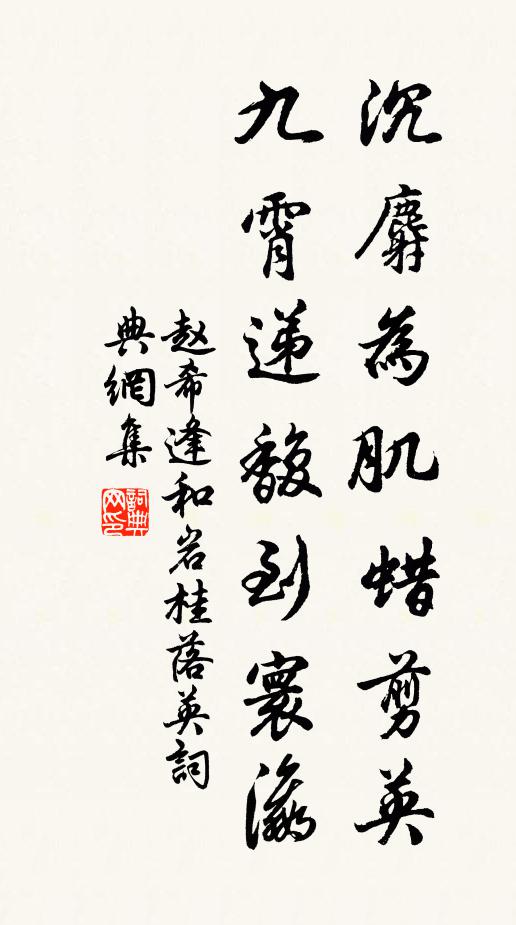 沉麝為肌蜡剪英
九霄递馥到寰瀛
赵希逢和岩桂落英詞
典網集
詞典网印